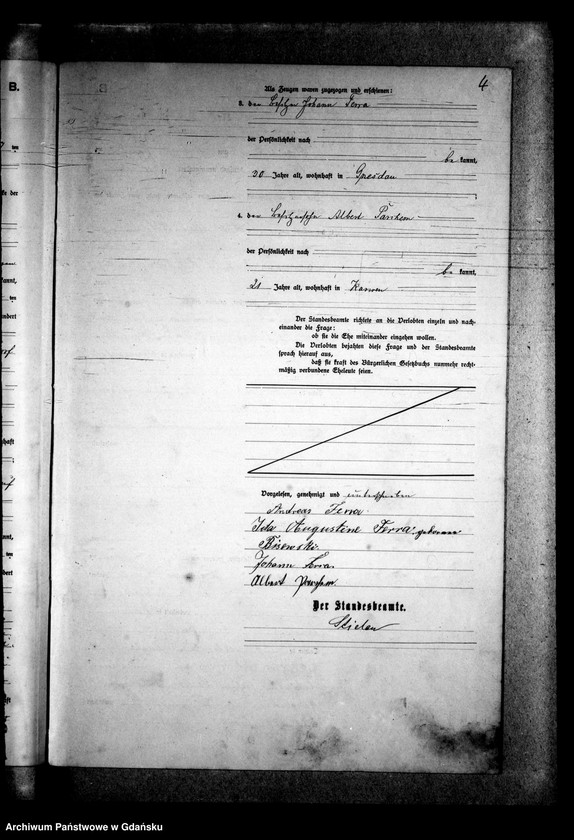 4
B.
Als Zeugen waren zugezogen und erschienen:
3. der Besitzer Johann Terra
der Persönlichkeit nach
be kannt,
30 Jahre alt, wohnhaft in
4. der Besitzersohn Albert Parchem
der Persönlichkeit nach
be kannt,
21 Jahre alt, wohnhaft in Karwen
Der Standesbeamte richtete an die Verlobten einzeln und nach-
einander die Frage:
ob sie die Ehe miteinander eingehen wollen.
Die Verlobten bejahten diese Frage und der Standesbeamte
sprach hierauf aus,
daß sie kraft des Bürgerlichen Gesetzbuchs nunmehr recht-
mäßig verbundene Eheleute seien.
Vorgelesen, genehmigt und unterschrieben
Andreas Terra
Ida Augustine Terra geborene
Bisewski
Johann Terra
Albert Parchem
Der Standesbeamte.
Archiwum Państwowe w Gdańsku